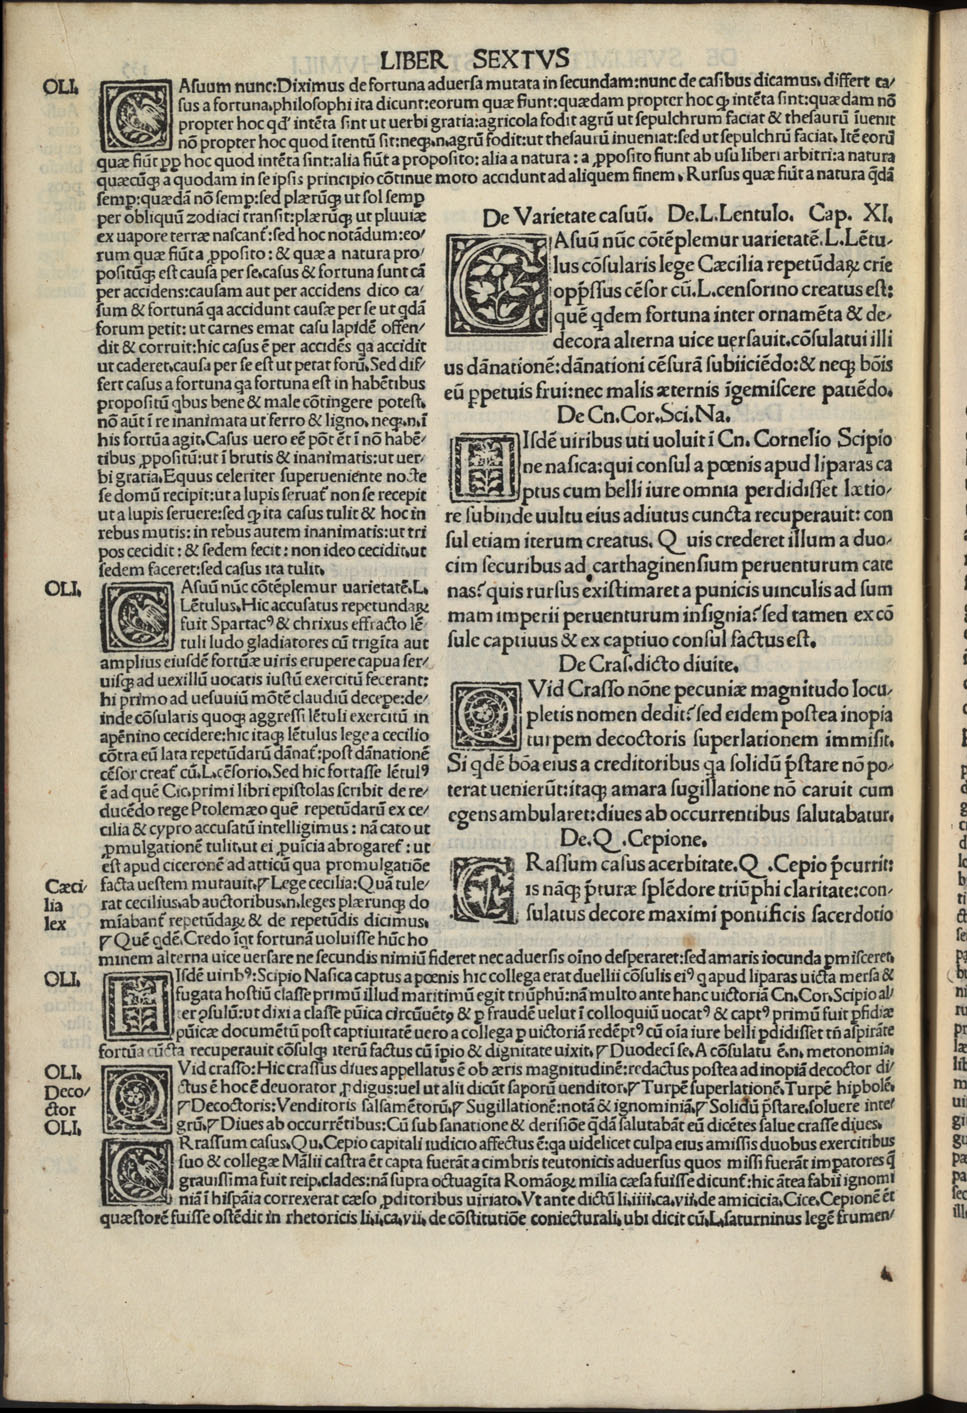 LIBER SEXTVS
OLI.
CAsuum nunc:Diximus de fortuna aduersa mutata in secundam:nunc de casibus dicamus. differt ca/
sus a fortuna.philosophi ita dicunt:eorum quæ fiunt:quædam propter hoc ꝙ intẽta sint:quædam nõ
propter hoc qd' intẽta sint ut uerbi gratia:agricola fodit agrũ ut sepulchrum faciat & thesaurũ ĩuenit
nõ propter hoc quod ĩtentũ sit:neqꝫ.n.agrũ fodit:ut thesaurũ inueniat:sed ut sepulchrũ faciat. Itẽ eorũ
quæ fiũt ꝓp hoc quod intẽta sint:alia fiũt a proposito: alia a natura : a ꝓposito fiunt ab usu liberi arbitri:a natura
quæcũqꝫ a quodam in se ipsis principio cõtinue moto accidunt ad aliquem finem. Rursus quæ fiũt a natura q̃dã
semꝑ:quædã nõ semꝑ:sed plærũqꝫ ut sol semꝑ
per obliquũ zodiaci transit:plærũqꝫ ut pluuiæ
ex uapore terræ nascanť:sed hoc notãdum:eo/
rum quæ fiũt a ꝓposito : & quæ a natura pro/
positũqꝫ est causa per se.casus & fortuna sunt cã
per accidens:causam aut per accidens dico ca/
sum & fortunã qa accidunt causæ per se ut qdã
forum petit: ut carnes emat casu lapidẽ offen/
dit & corruit:hic casus ẽ per accidẽs qa accidit
ut caderet.causa per se est ut petat forũ.Sed dif/
fert casus a fortuna qa fortuna est in habẽtibus
propositũ qbus bene & male cõtingere potest.
nõ aũt ĩ re inanimata ut ferro & ligno, neqꝫ.n.ĩ
his fortũa agit.Casus uero eẽ põt ẽt ĩ nõ habẽ/
tibus ꝓpositũ:ut ĩ brutis & inanimatis:ut uer/
bi gratia.Equus celeriter superueniente nocte
se domũ recipit:ut a lupis seruať non se recepit
ut a lupis seruere:sed ꝙ ita casus tulit & hoc in
rebus mutis: in rebus autem inanimatis:ut tri
pos cecidit : & sedem fecit : non ideo cecidit.ut
sedem faceret:sed casus ita tulit.
OLI.
CAsuũ nũc cõtẽplemur uarietatẽ.L.
Lẽtulus.Hic accusatus repetundaꝝ
fuit Spartacꝰ & chrixus effracto lẽ/
tuli ludo gladiatores cũ trigĩta aut
amplius eiusdẽ fortũæ uiris erupere capua ser/
uisqꝫ ad uexillũ uocatis iustũ exercitũ fecerant:
hi primo ad uesuuiũ mõtẽ claudiũ decepe:de/
inde cõsularis quoqꝫ aggressi lẽtuli exercitũ in
apẽnino cecidere:hic itaqꝫ lẽtulus lege a cecilio
cõtra eũ lata repetũdarũ dãnať:post dãnationẽ
cẽsor creať cũ.L.cẽsorio.Sed hic fortasse lẽtulꝰ
ẽ ad quẽ Cic.primi libri epistolas scribit de re/
ducẽdo rege Ptolemæo quẽ repetũdarũ ex ce/
cilia & cypro accusatũ intelligimus : nã cato ut
ꝓmulgationẽ tulit.ut ei ꝓuĩcia abrogareť : ut
est apud ciceronẽ ad atticũ qua promulgatiõe
Cæci/
lia
lex
facta uestem mutauit.⁋Lege cecilia:Quã tule/
rat cecilius.ab auctoribus.n.leges plærunqꝫ do
mĩabanť repetũdaꝝ & de repetũdis dicimus.
⁋Quẽ qdẽ.Credo ĩqt fortunã uoluisse hũc ho
minem alterna uice uersare ne secundis nimiũ fideret nec aduersis oĩno desperaret:sed amaris iocunda ꝑmisceret.
De Varietate casuũ. De.L.Lentulo. Cap. XI.
CAsuũ nũc cõtẽplemur uarietatẽ.L.Lẽtu/
lus cõsularis lege Cæcilia repetũdaꝝ crĩe
opp̃ssus cẽsor cũ.L.censorino creatus est:
quẽ qdem fortuna inter ornamẽta & de/
decora alterna uice uersauit.cõsulatui illi
us dãnationẽ:dãnationi cẽsurã subiiciẽdo:& neqꝫ bõis
eũ ꝑpetuis frui:nec malis æternis ĩgemiscere patiẽdo.
De Cn.Cor.Sci.Na.
IIsdẽ uiribus uti uoluit ĩ Cn. Cornelio Scipio
ne nasica:qui consul a pœnis apud liparas ca
ptus cum belli iure omnia perdidisset lætio/
re subinde uultu eius adiutus cuncta recuperauit: con
sul etiam iterum creatus. Quis crederet illum a duo/
cim securibus ad carthaginensium peruenturum cate
nas? quis rursus existimaret a punicis uinculis ad sum
mam imperii peruenturum insignia? sed tamen ex cõ
sule captiuus & ex captiuo consul factus est.
De Cras.dicto diuite.
QVid Crasso nõne pecuniæ magnitudo locu/
pletis nomen dedit? sed eidem postea inopia
turpem decoctoris superlationem immisit.
Si qdẽ bõa eius a creditoribus qa solidũ p̃stare nõ po/
terat uenierũt:itaqꝫ amara sugillatione nõ caruit cum
egens ambularet:diues ab occurrentibus salutabatur.
De.Q.Cepione.
CRassum casus acerbitate.Q.Cepio p̃currit:
is nãqꝫ p̃turæ splẽdore triũphi claritate:con/
sulatus decore maximi pontificis sacerdotio
OLI.
IIsdẽ uiribꝰ:Scipio Nasica captus a pœnis hic collega erat duellii cõsulis eiꝰ q apud liparas uicta mersa &
fugata hostiũ classe primũ illud maritimũ egit triũphũ:nã multo ante hanc uictoriã Cn.Cor.Scipio al/
ter ꝓsulũ:ut dixi a classe pũica circũuẽtꝰ & ꝑ fraudẽ uelut ĩ colloquiũ uocatꝰ & captꝰ primũ fuit ꝑfidiæ
pũicæ documẽtũ post captiuitatẽ uero a collega ꝑ uictoriã redẽptꝰ cũ oĩa iure belli ꝑdidisset tñ aspirãte
fortũa cũcta recuperauit cõsulqꝫ iterũ factus cũ ĩpio & dignitate uixit.⁋Duodecĩ se.A cõsulatu ẽ.n. metonomia.
OLI.
QVid crasso:Hic crassus diues appellatus ẽ ob æris magnitudinẽ:redactus postea ad inopiã decoctor di/
Deco/
ctor
ctus ẽ hoc ẽ deuorator ꝓdigus:uel ut alii dicũt saporũ uenditor.⁋Turpẽ superlationẽ.Turpẽ hipbolẽ.
⁋Decoctoris:Venditoris salsamẽtorũ.⁋Sugillationẽ:notã & ignominiã.⁋Solidũ p̃stare.soluere inte/
OLI.
grũ.⁋Diues ab occurrẽtibus:Cũ sub sanatione & derisiõe q̃dã salutabãt eũ dicẽtes salue crasse diues.
CRrassum casus.Qu.Cepio capitali iudicio affectus ẽ:qa uidelicet culpa eius amissis duobus exercitibus
suo & collegæ Mãlii castra ẽt capta fuerãt a cimbris teutonicis aduersus quos missi fuerãt imꝑatores q̃
grauissima fuit reip.clades:nã supra octuagĩta Romãoꝝ milia cæsa fuisse dicunť:hic ãtea fabii ignomi
niã ĩ hispãia correxerat cæso ꝓditoribus uiriato.Vt ante dictũ li.iiii.ca.vii.de amicicia.Cice.Cepionẽ ẽt
quæstorẽ fuisse ostẽdit in rhetoricis li.i.ca.vii. de cõstitutiõe coniecturali.ubi dicit cũ.L.saturninus legẽ frumen/